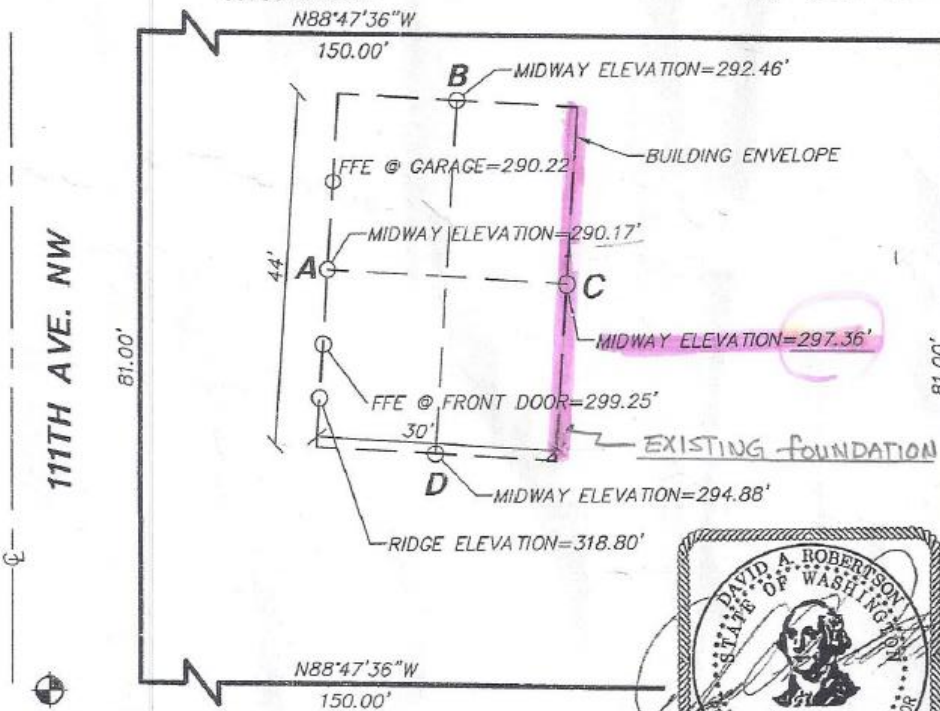 N88°47'36"W
150.00'
B
MIDWAY ELEVATION=292.46'
BUILDING ENVELOPE
FFE @ GARAGE=290.22'
MIDWAY ELEVATION=290.17'
44'
A
C
111TH AVE. NW
81.00'
MIDWAY ELEVATION=297.36'
81.00'
FFE @ FRONT DOOR=299.25'
30'
EXISTING FOUNDATION
D
MIDWAY ELEVATION=294.88'
RIDGE ELEVATION=318.80'
DAVID A. ROBERTSON
STATE OF WASHINGTON
N88°47'36"W
150.00'